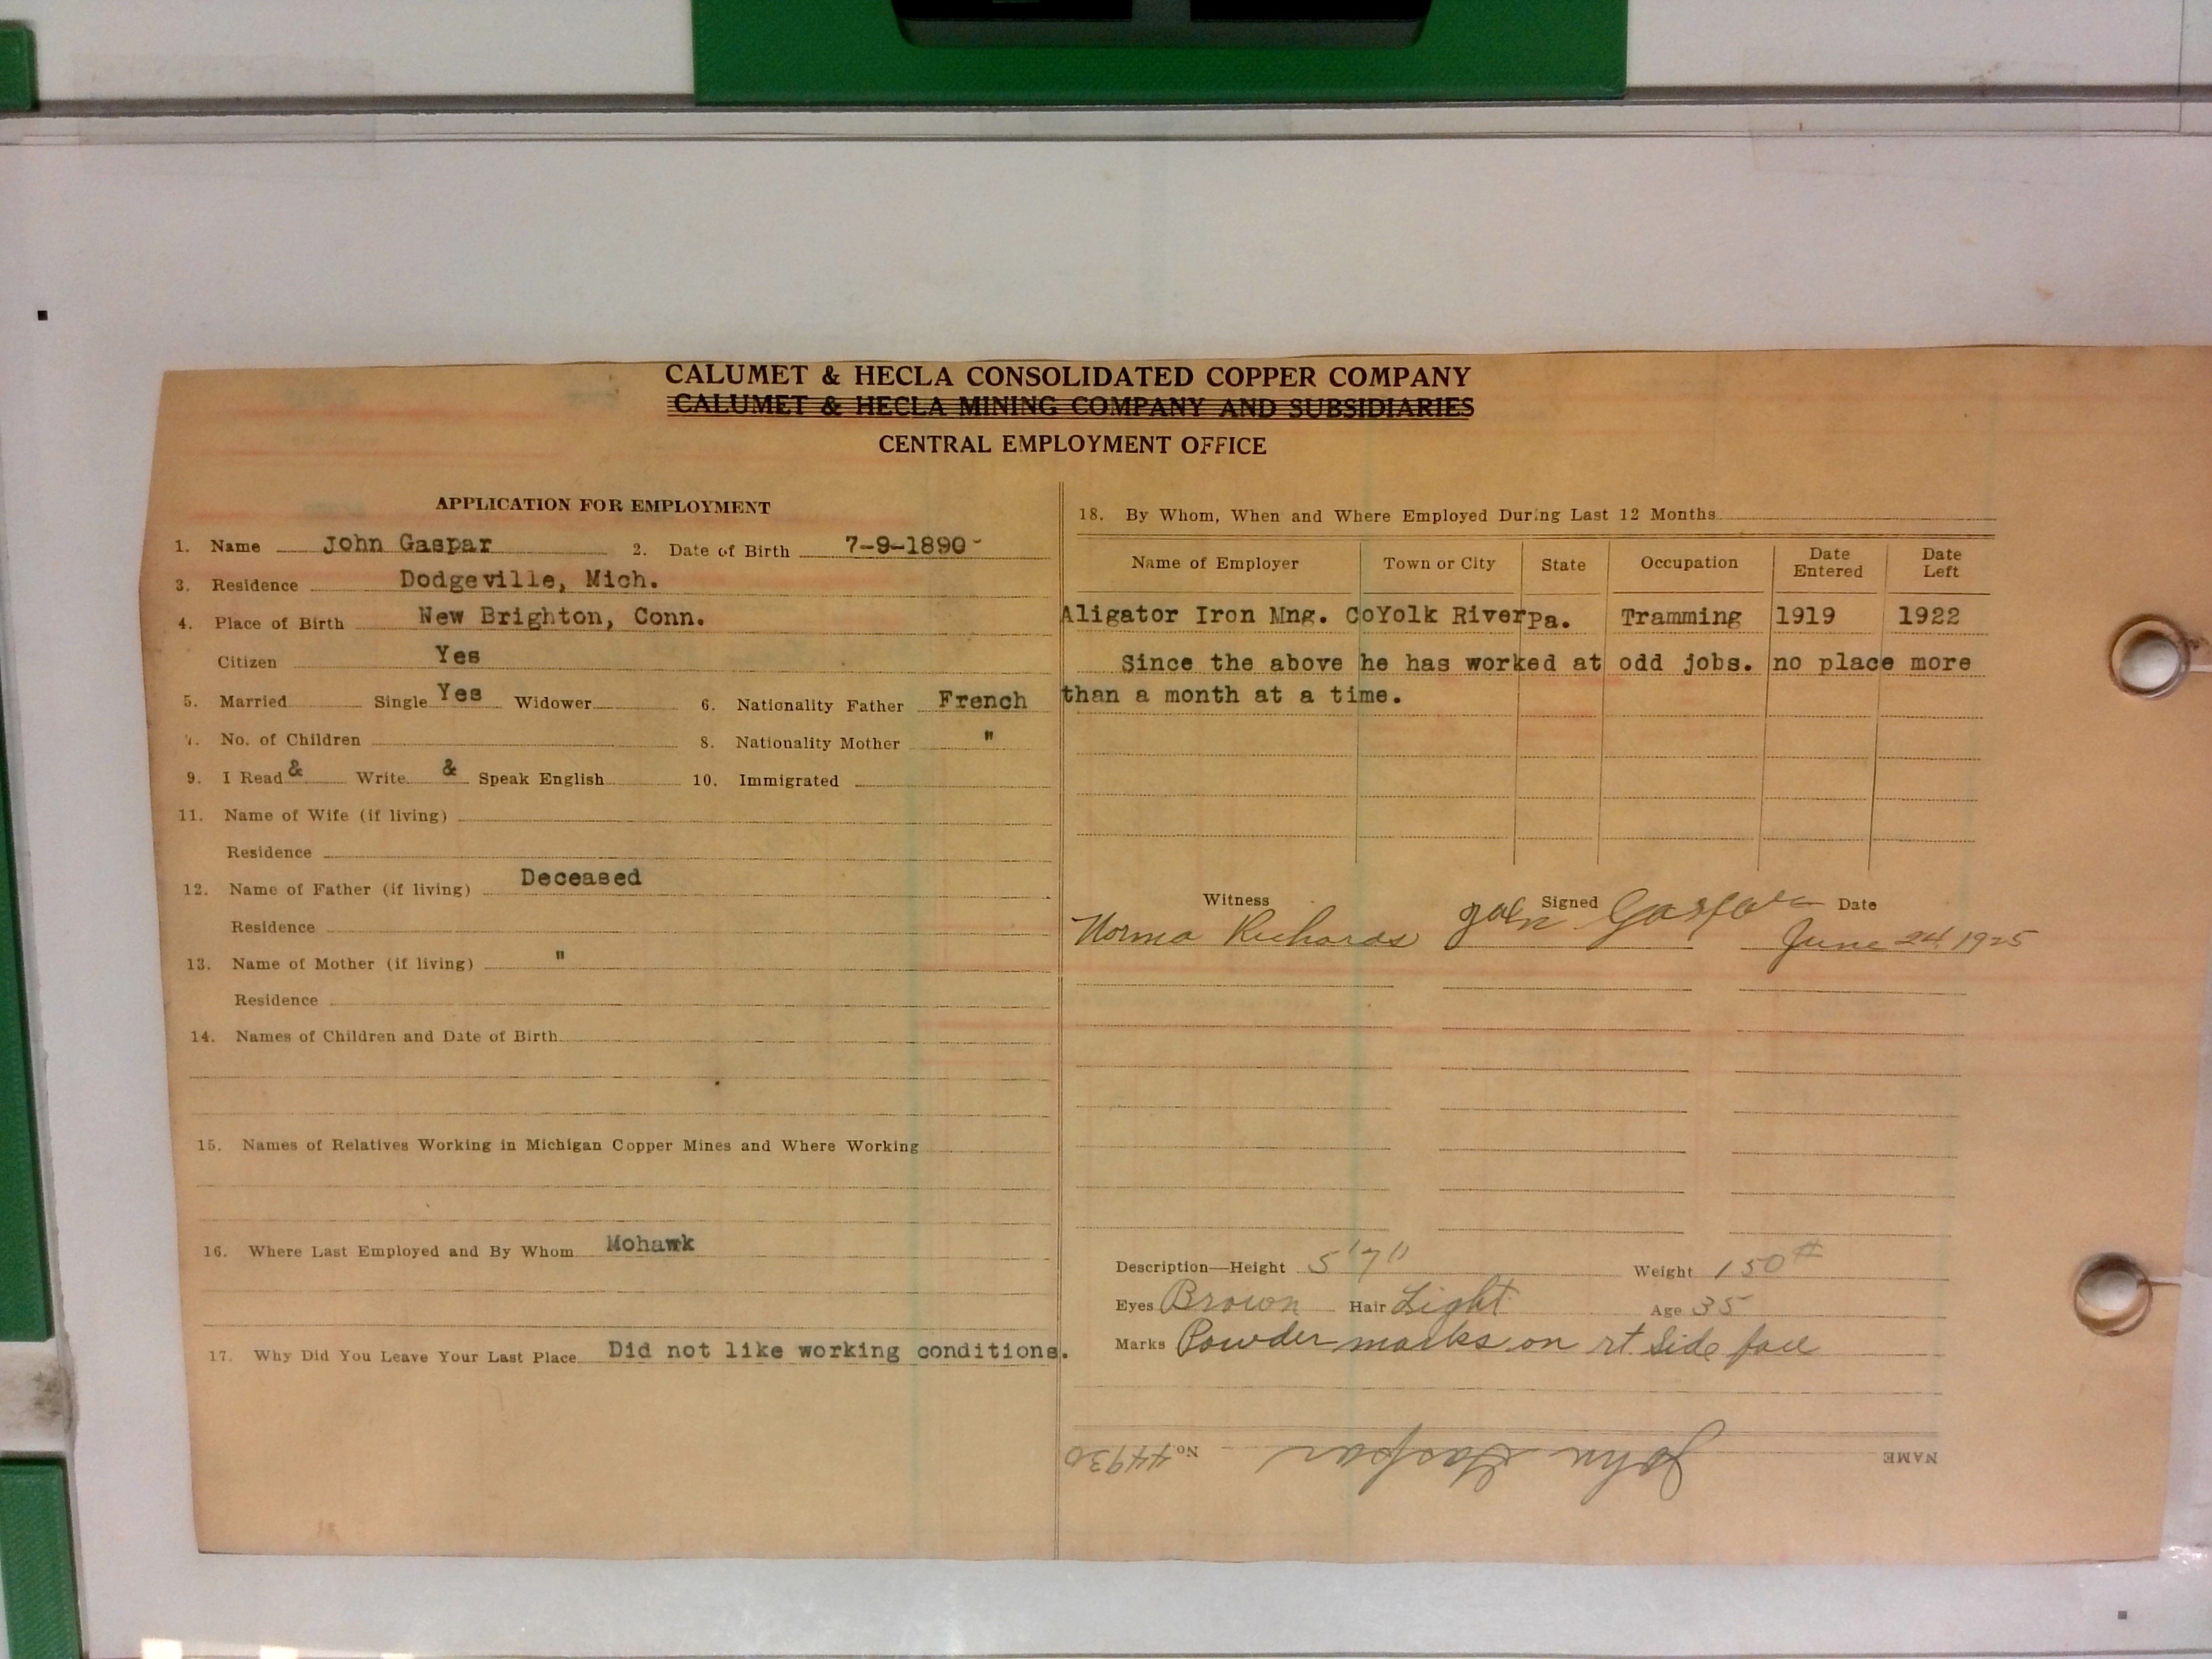 CALUMET & HECLA CONSOLIDATED COPPER COMPANY
CALUMET & HECLA MINING COMPANY AND SUBSIDIARIES
CENTRAL EMPLOYMENT OFFICE
APPLICATION FOR EMPLOYMENT
1. Name John Gaspar 2. Date of Birth 7-9-1890-
3. Residence Dodgeville, Mich.
4. Place of Birth New Brighton, Conn.
Citizen Yes
5. Married Single Yes Widower 6. Nationality Father French
7. No. of Children 8. Nationality Mother "
9. I Read & Write & Speak English 10. Immigrated
11. Name of Wife (if living)
Residence
12. Name of Father (if living) Deceased
Residence
13. Name of Mother (if living) "
Residence
14. Names of Children and Date of Birth
15. Names of Relatives Working in Michigan Copper Mines and Where Working
16. Where Last Employed and By Whom Mohawk
17. Why Did You Leave Your Last Place Did not like working conditions.
18. By Whom, When and Where Employed During Last 12 Months
Name of Employer Town or City State Occupation Date Entered Date Left
Aligator Iron Mng. Co Yolk River Pa. Tramming 1919 1922
Since the above he has worked at odd jobs. no place more
than a month at a time.
Witness Signed Date
Norma Richards John Gaspar June 24, 1925
Description—Height 5'7" Weight 150#
Eyes Brown Hair Light Age 35
Marks Powder marks on rt side face
NAME John Gaspar No. 44930